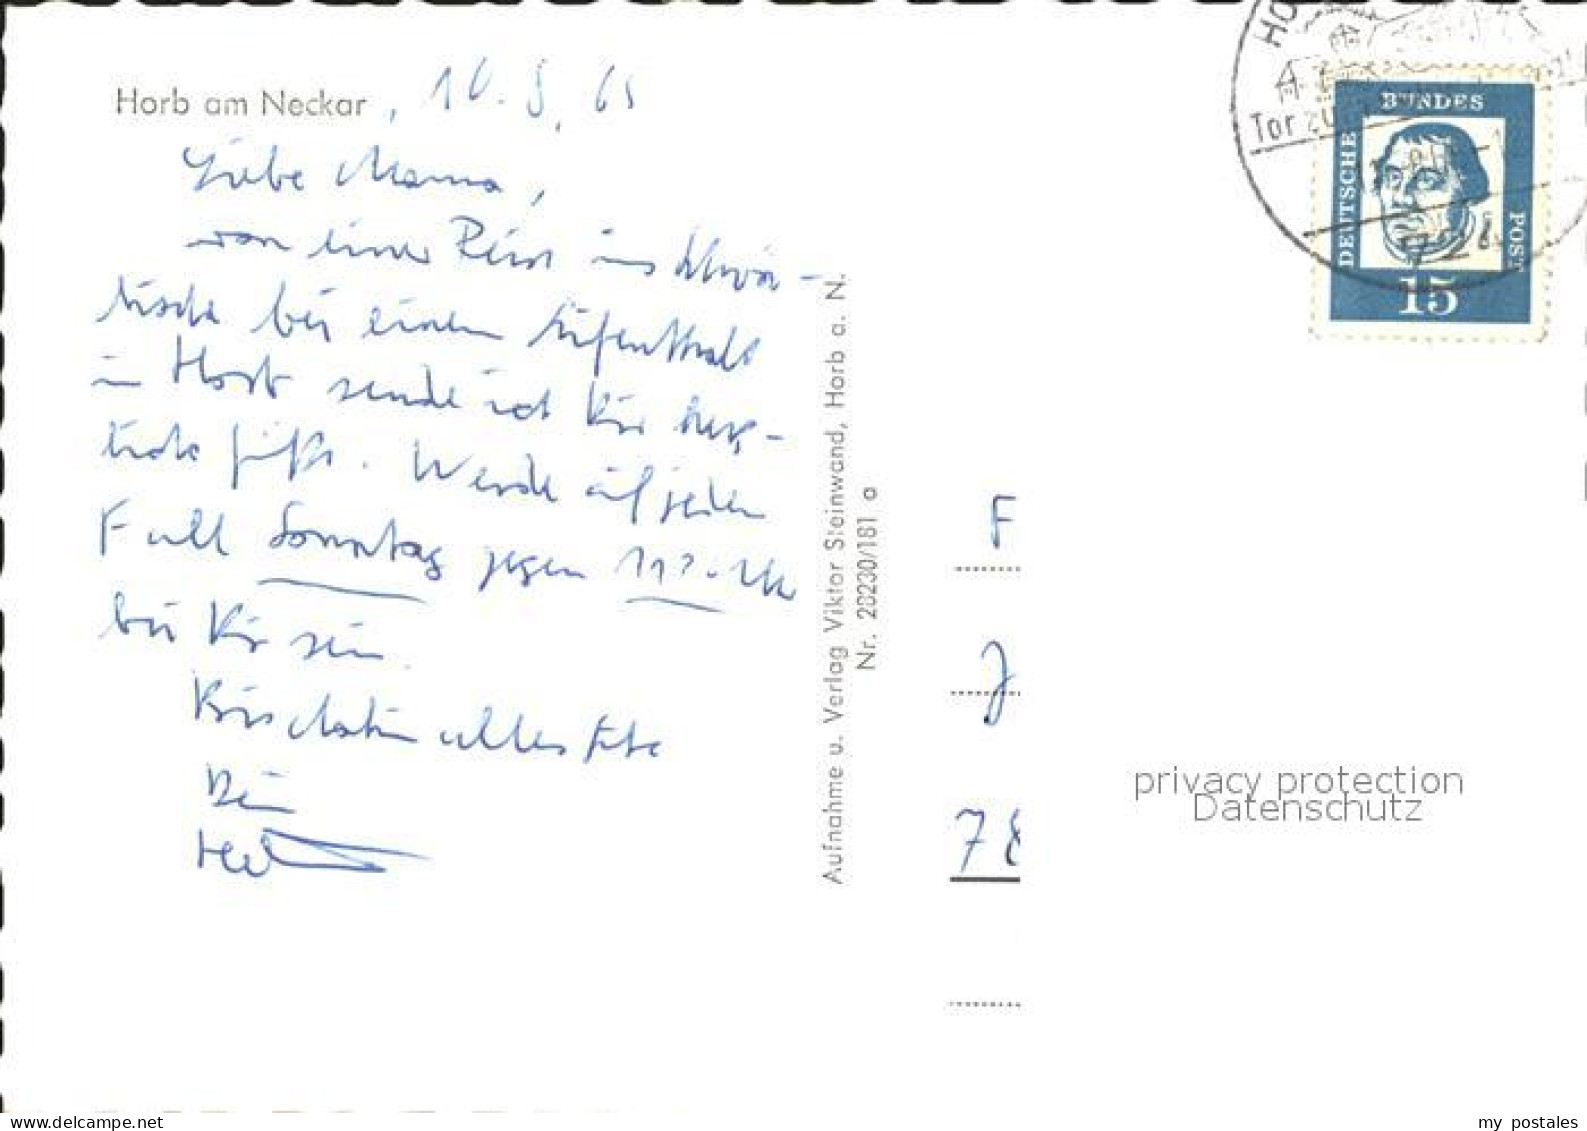 Horb am Neckar, 10.5.65
Liebe Mama,
von einer Reise ins Schwä-
bische bei einem Aufenthalt
in Horb sende ich Dir herz-
liche Grüße. Werde auf jeden
Fall Sonntag gegen Uhr
bei Dir sein.
alles Gute
Dein
Aufnahme u. Verlag Viktor Steinwand, Horb a. N.
Nr. 28230/181 a
HO
Tor zu
724
DEUTSCHE BUNDES POST
15
F
J
78
privacy protection
Datenschutz
www.delcampe.net
my postales